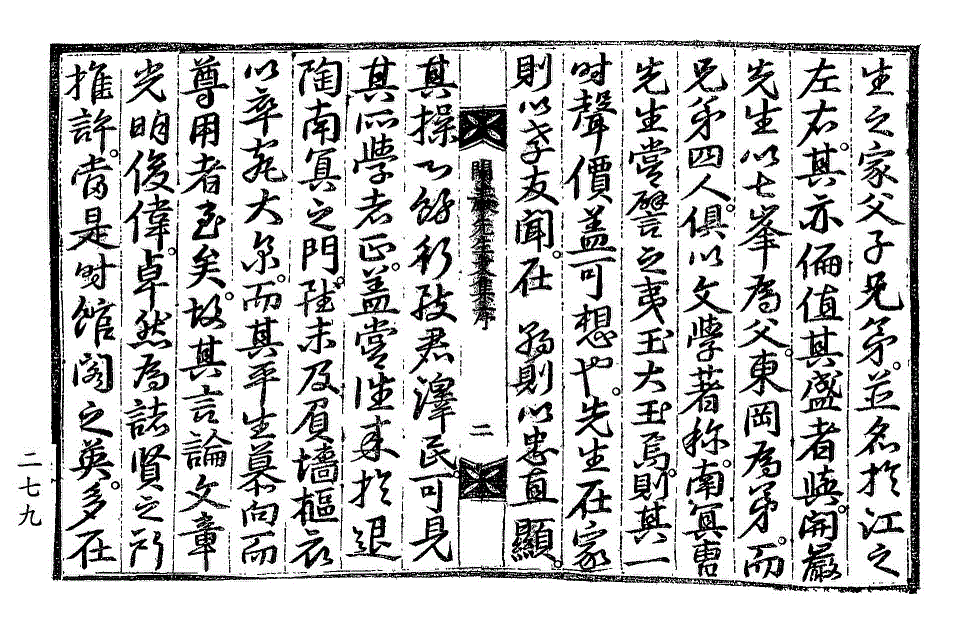 生之家父子兄弟。並名於江之
左右。其亦僃值其盛者與。開巖
先生以七峯爲父。東岡爲弟。而
兄弟四人。俱以文學著称。南冥曺
先生嘗譬之夷玉大玉焉。則其一
时聲價盖可想也。先生在家
則以孝友聞。在 朝則以忠直顯。
開巖先生文集序
二
其操心飭行致君澤民。可見
其所學者正。盖嘗往来於退
陶南冥之門。雖未及摳衣
以卒大家。而其平生慕向而
尊用者至矣。故其言論文章
光明俊偉。卓然爲諸賢之所
推許。當是时館閣之英。多在
二七九